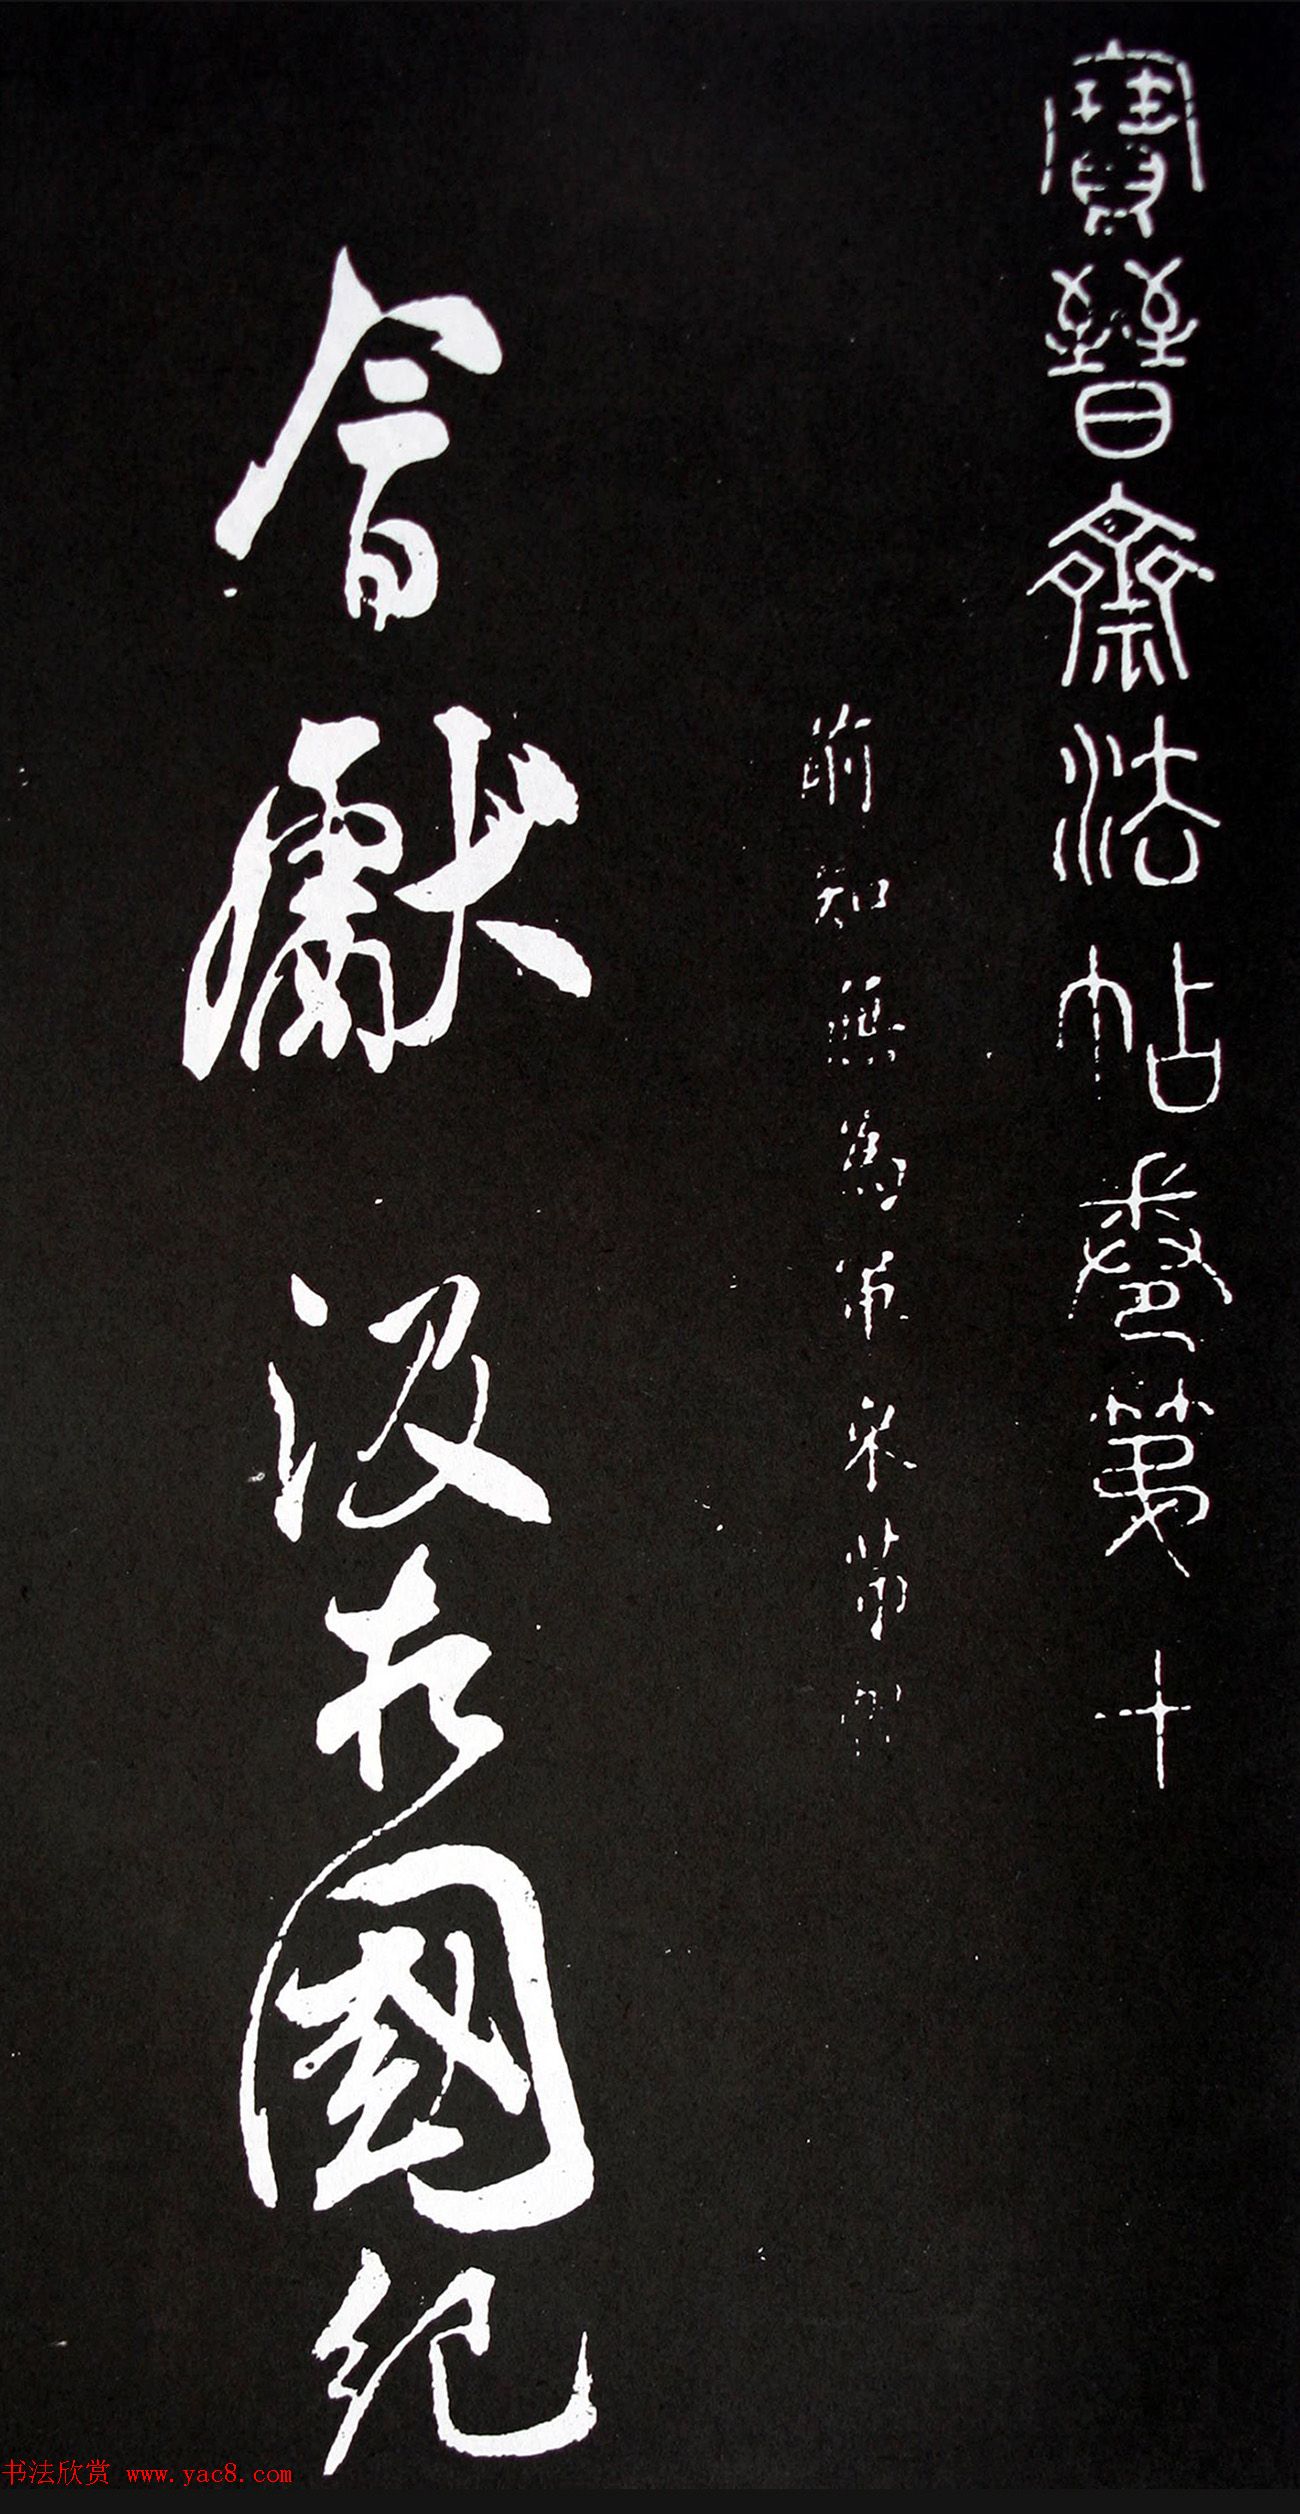 寶晉齋法帖卷第十
前知無為軍米芾
會獻汲國紀
书法欣赏 www.yac8.com